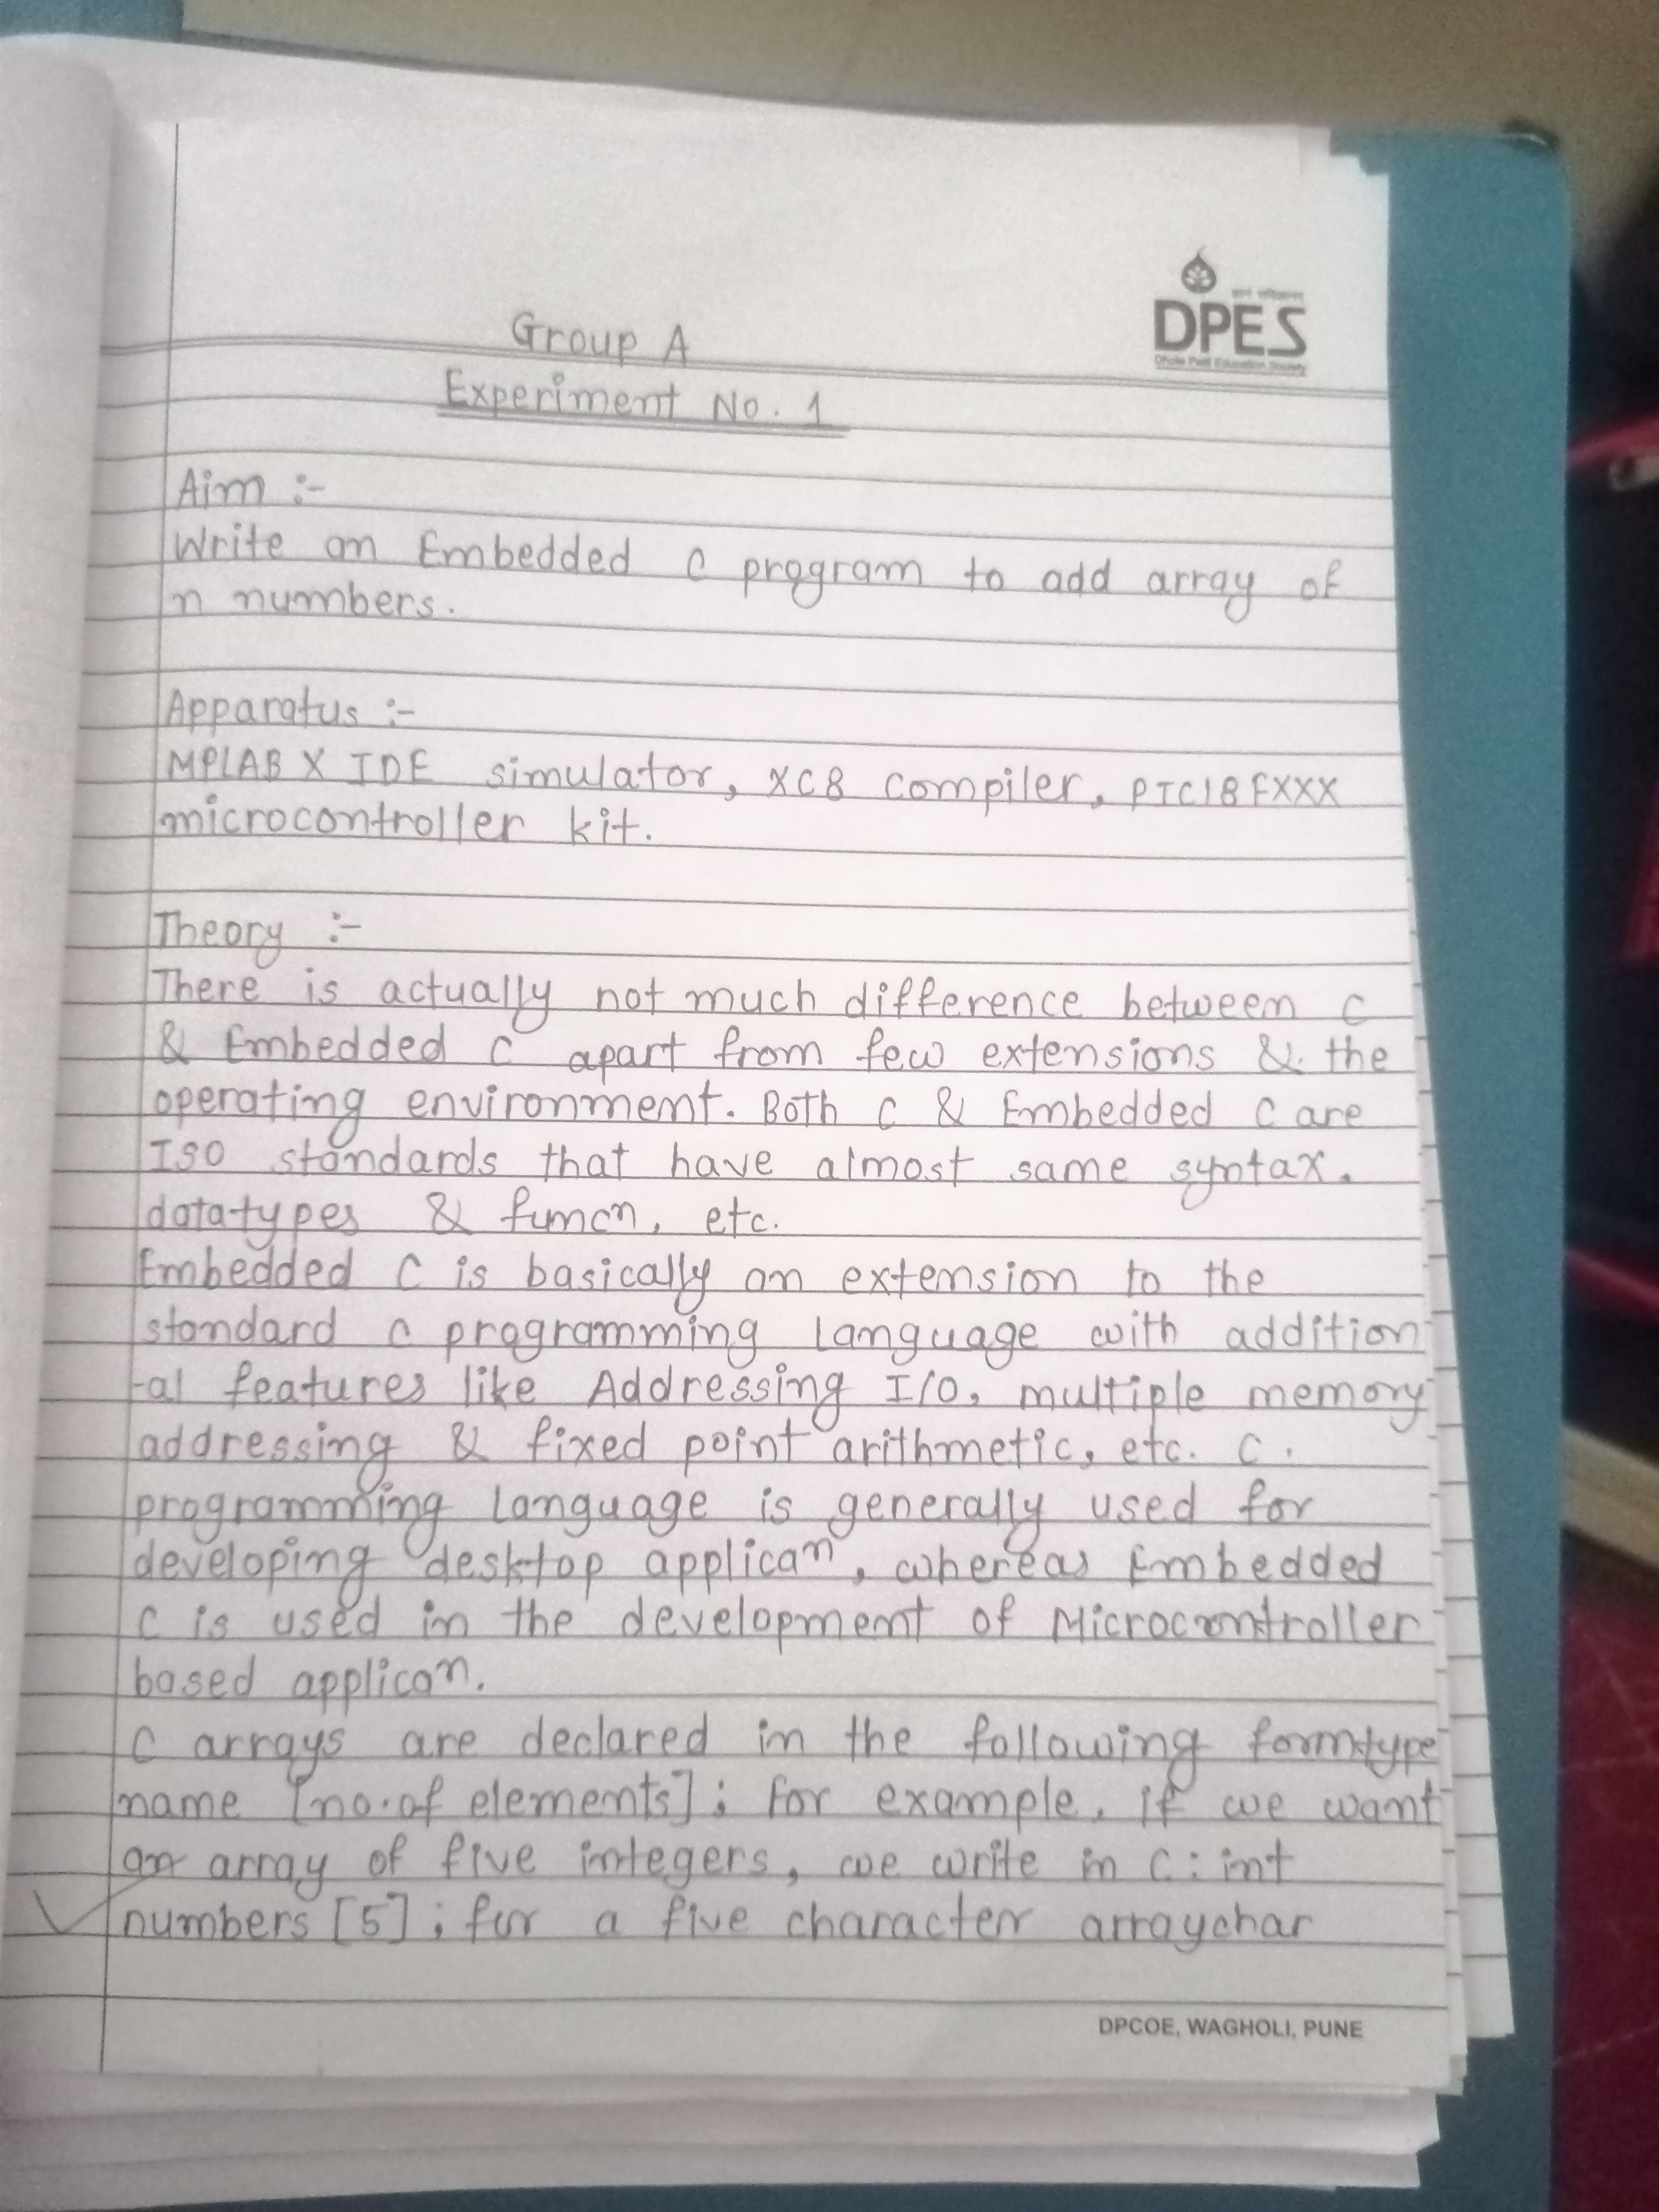 DPES
Dhole Patil Education Society
Group A
Experiment No. 1
Aim :-
Write an Embedded C program to add array of
n numbers.
Apparatus :-
MPLAB X IDE simulator, XC8 compiler, PIC18FXXX
microcontroller kit.
Theory :-
There is actually not much difference between C
& Embedded C apart from few extensions & the
operating environment. Both C & Embedded C are
ISO standards that have almost same syntax.
datatypes & funcn, etc.
Embedded C is basically an extension to the
standard C programming language with addition
-al features like Addressing I/O, multiple memory
addressing & fixed point arithmetic, etc. C.
programming language is generally used for
developing desktop applican, whereas Embedded
C is used in the development of Microcontroller
based applican.
C arrays are declared in the following form:type
name [no.of elements]; for example, if we want
an array of five integers, we write in C: int
numbers [5]; for a five character arraychar
DPCOE, WAGHOLI, PUNE